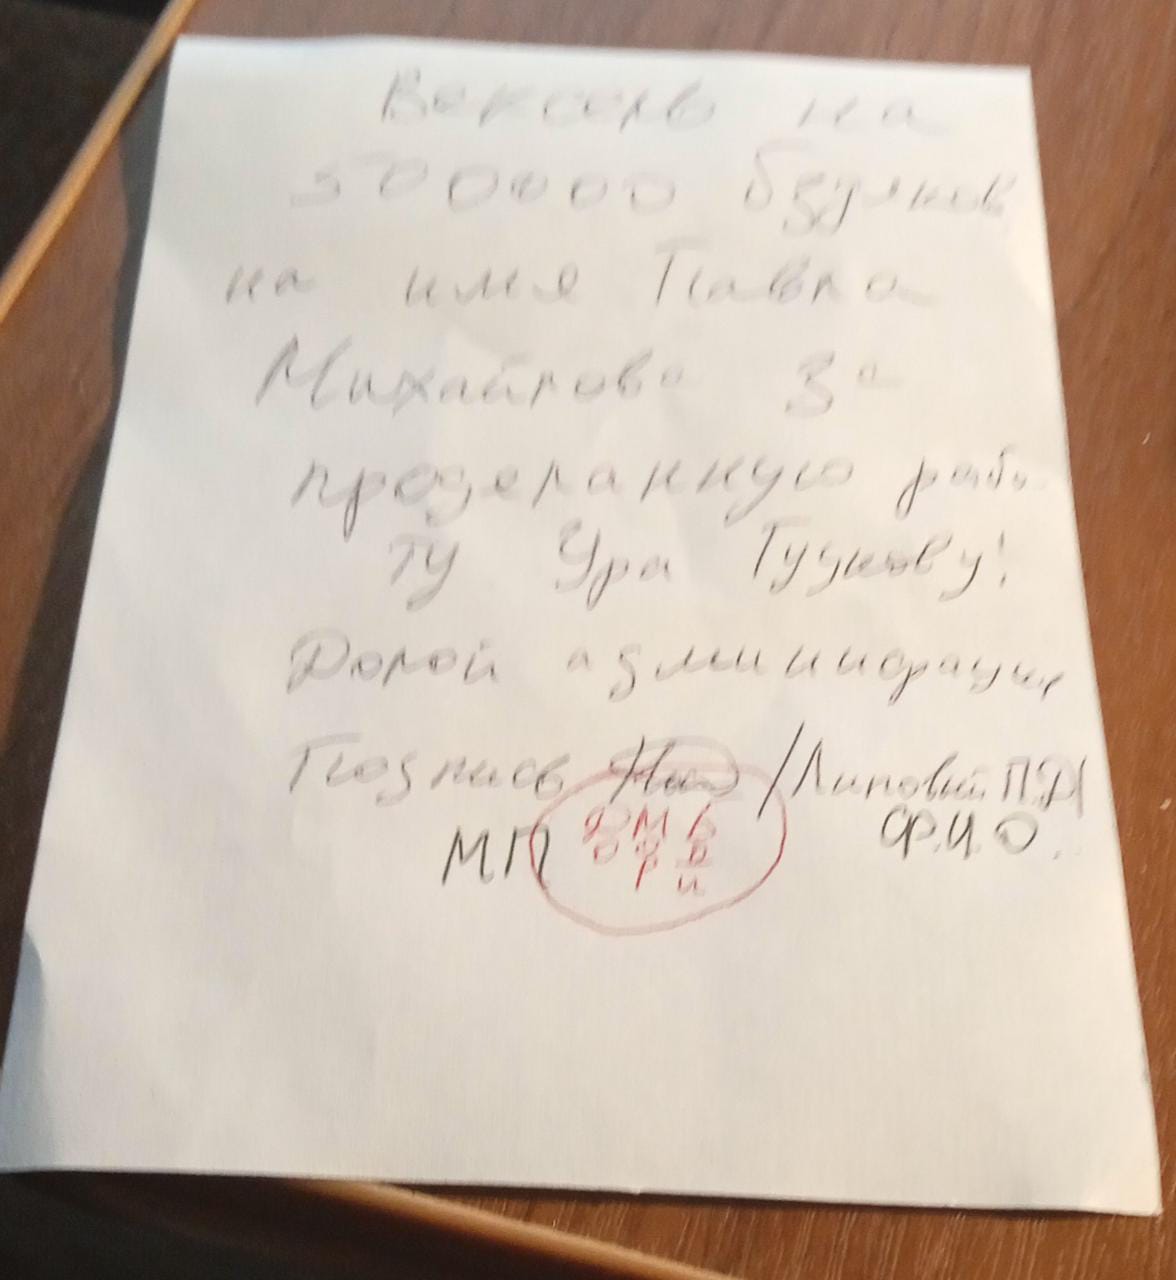 Вексель на
500000 будяков
на имя Павла
Михайлова за
проделанную рабо
ту Ура Гудкову!
Долой администрацию
Подпись /Липовый П.Д/
МП Ф.И.О.